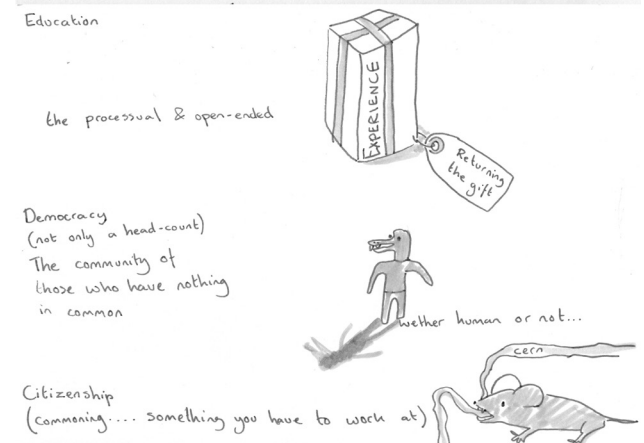 Education
the processual & open-ended
EXPERIENCE
Returning
the gift
Democracy
(not only a head-count)
The community of
those who have nothing
in common
wether human or not...
cern
Citizenship
(commoning.... something you have to work at)